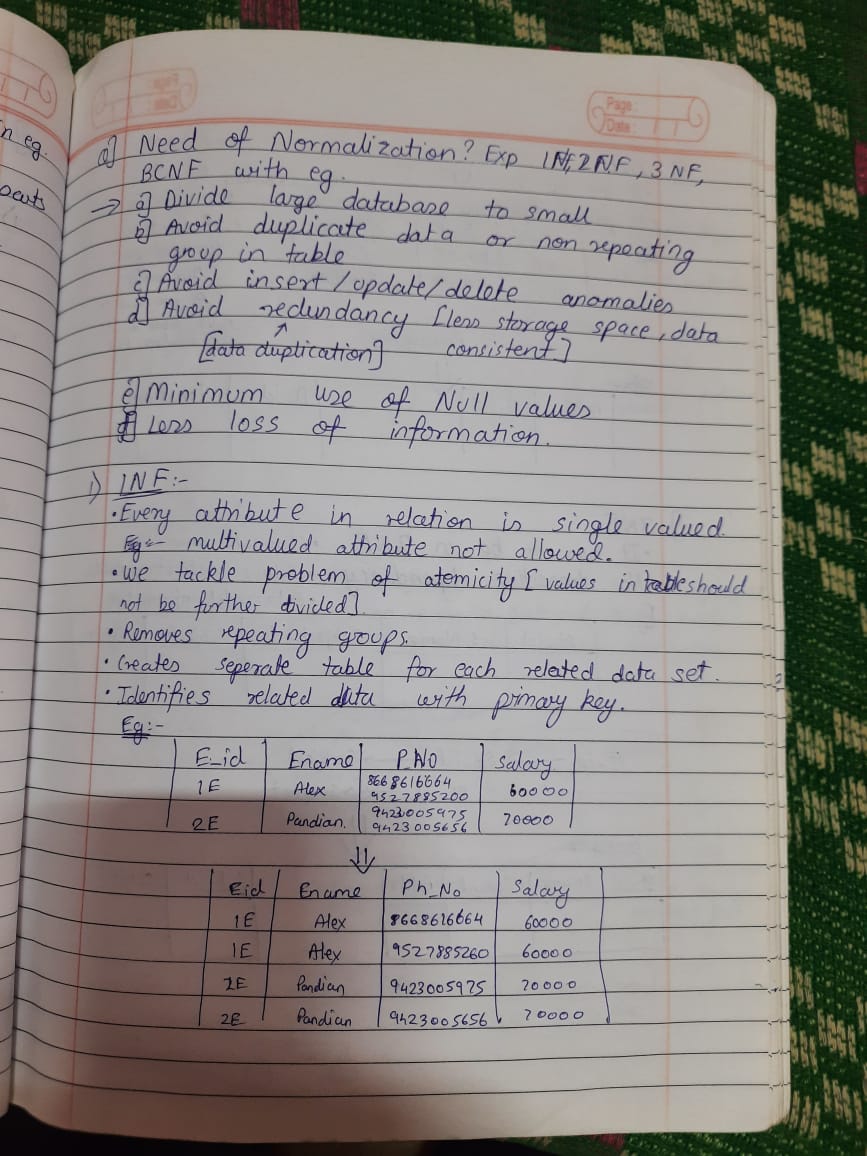 n eg.
oarts
Page:
Date:
Q] Need of Normalization? Exp 1NF, 2NF, 3NF,
BCNF with eg.
→ a] Divide large database to small
b] Avoid duplicate data or non repeating
group in table
c] Avoid insert/update/delete anomalies
d] Avoid redundancy [less storage space, data
[data duplication] consistent]
e] Minimum use of Null values
f] Less loss of information.
1) 1NF:-
• Every attribute in relation is single valued.
multivalued attribute not allowed.
• We tackle problem of atomicity [values in table should
not be further divided]
• Removes repeating groups.
• Creates seperate table for each related data set.
• Identifies related data with primary key.
Eg:-
E_id Ename P_NO Salary
1E Alex 8668616664 60000
9527885200
2E Pandian. 9423005975 70000
9423005656
⇓
Eid Ename Ph_No Salary
1E Alex 8668616664 60000
1E Alex 9527885260 60000
2E Pandian 9423005975 70000
2E Pandian 9423005656 70000